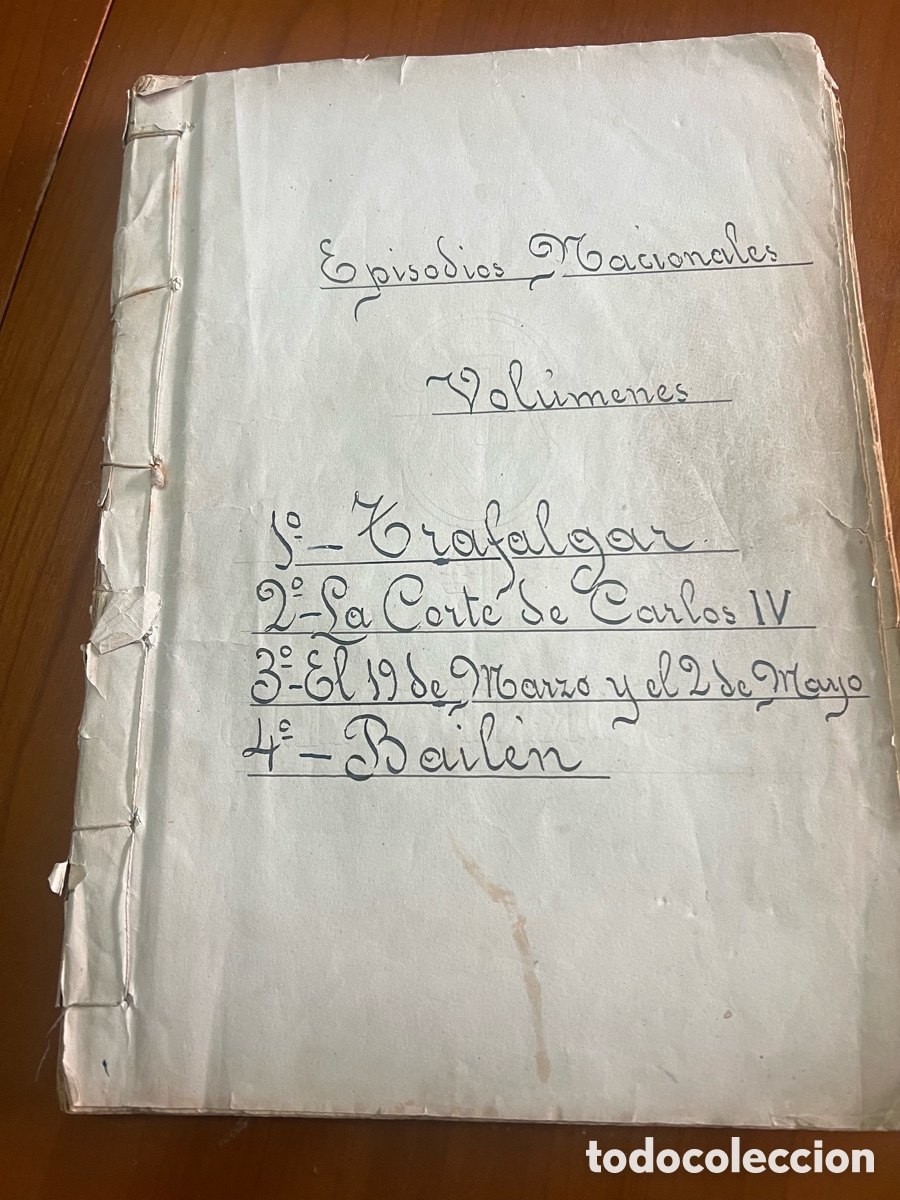 Episodios Nacionales
Volúmenes
1º - Trafalgar
2º - La Corte de Carlos IV
3º - El 19 de Marzo y el 2 de Mayo
4º - Bailén
todocoleccion